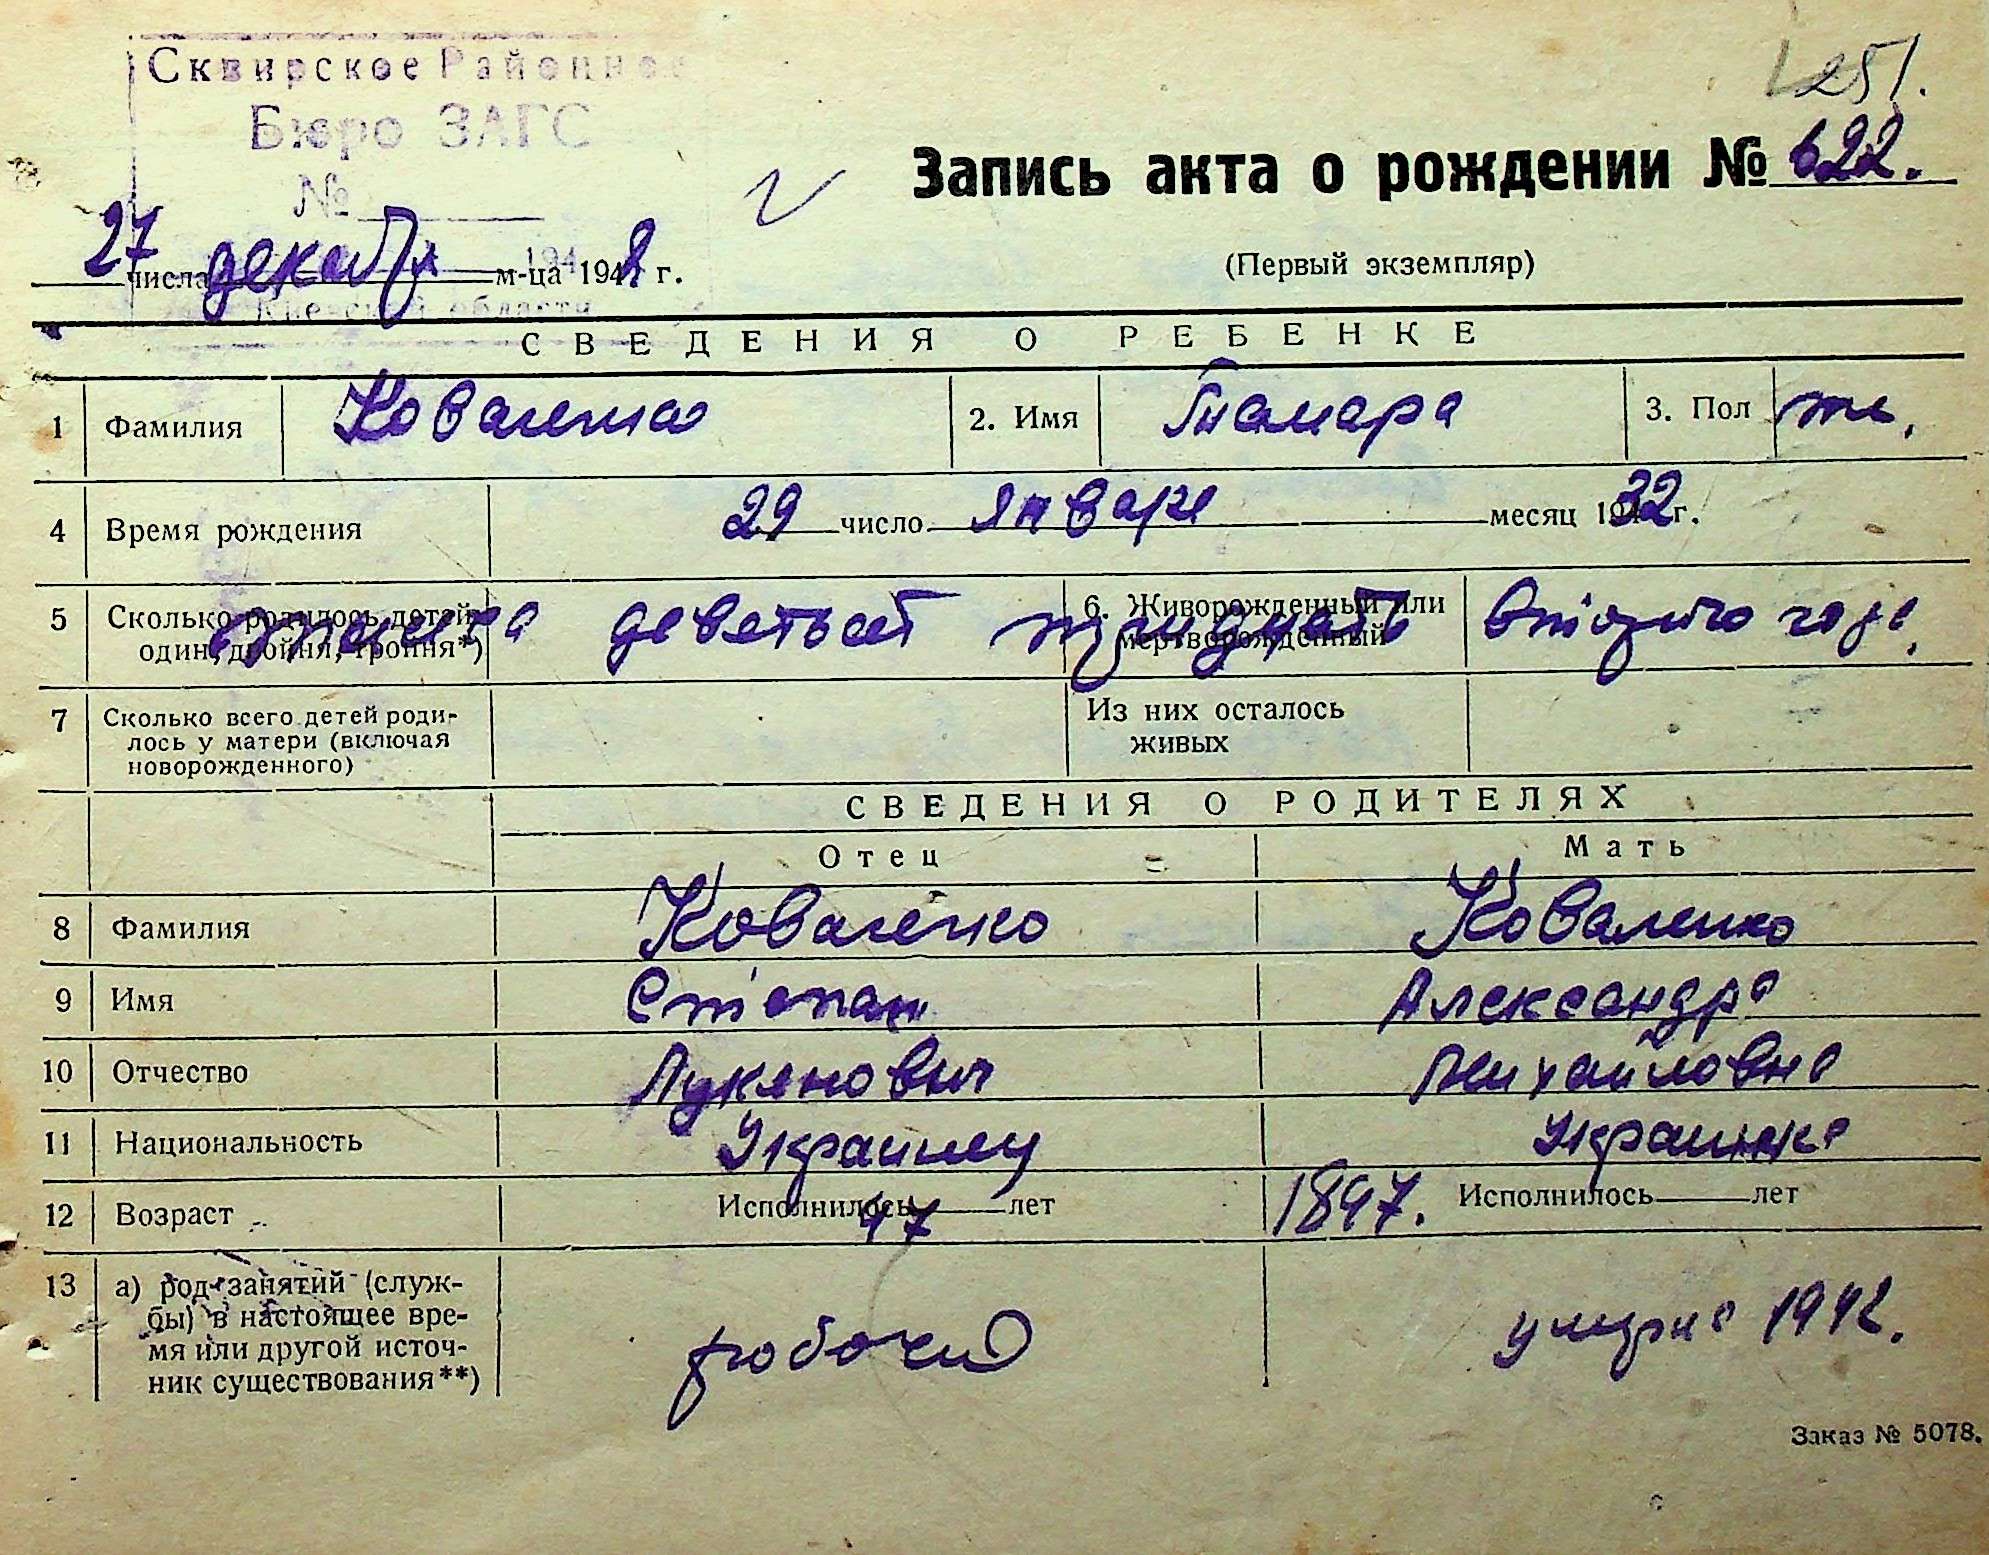 Сквирское Районное
Бюро ЗАГС
№
251.
Запись акта о рождении № 622.
(Первый экземпляр)
27 числа декабря м-ца 1948 г.
Киевской области
СВЕДЕНИЯ О РЕБЕНКЕ
1 Фамилия Коваленко 2. Имя Тамара 3. Пол ж.
4 Время рождения 29 число января месяц 1932 г.
5 Сколько родилось детей один, двойня, тройня*) 6. Живорожденный или мертворожденный
тысяча девятьсот тридцать второго года.
7 Сколько всего детей роди-
лось у матери (включая
новорожденного)
Из них осталось
живых
СВЕДЕНИЯ О РОДИТЕЛЯХ
Отец Мать
8 Фамилия Коваленко Коваленко
9 Имя Степан Александра
10 Отчество Лукянович Михайловна
11 Национальность Украинец Украинка
12 Возраст Исполнилось 47 лет 1897. Исполнилось лет
13 а) род занятий (служ-
бы) в настоящее вре-
мя или другой источ-
ник существования**)
рабочий умерла 1942.
Заказ № 5078.